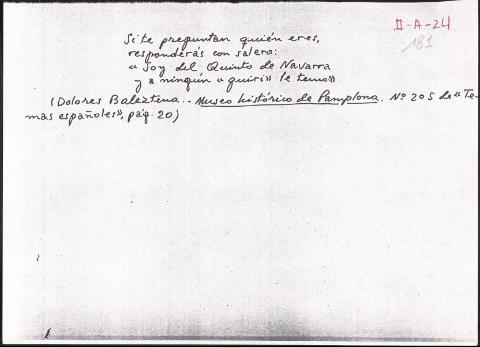 II-A-24
181
Si te preguntan quién eres,
responderás con salero:
"Soy del Quinto de Navarra
y a ningún "guiri" le temo"
(Dolores Baleztena.- Museo histórico de Pamplona. Nº 205 de "Te-
mas españoles", pág. 20)